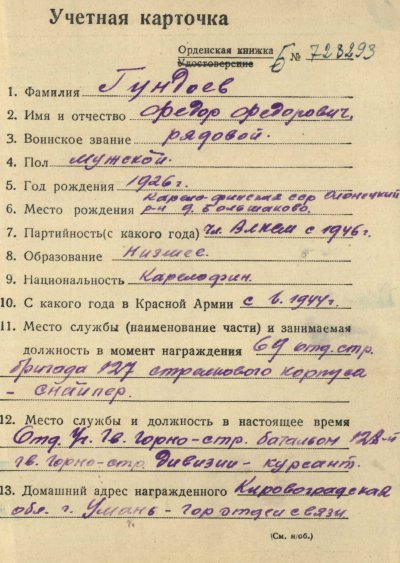 Учетная карточка
Орденская книжка
Удостоверение Б № 728293
1. Фамилия Гундоев
2. Имя и отчество Федор Федорович,
3. Воинское звание рядовой.
4. Пол мужской.
5. Год рождения 1926 г.
Карело-финская сср Олонецкий
6. Место рождения р-н д. Большаково.
7. Партийность (с какого года) чл. Влксм с 1946 г.
8. Образование Низшее.
9. Национальность Карелофин.
10. С какого года в Красной Армии с 1944 г.
11. Место службы (наименование части) и занимаемая
должность в момент награждения 69 отд. стр.
бригада 127 стрелкового корпуса
- снайпер.
12. Место службы и должность в настоящее время
Отд. Уч. Гв. горно-стр. батальон 128-й
гв. горно-стр. Дивизии - курсант.
13. Домашний адрес награжденного Кировоградская
обл. г. Умань - горотдел связи
(См. н/об.)